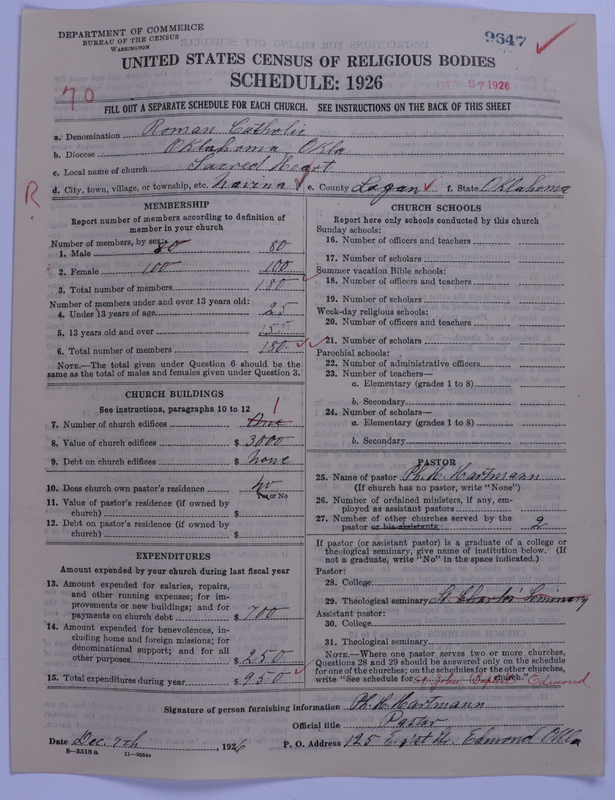 DEPARTMENT OF COMMERCE
BUREAU OF THE CENSUS
WASHINGTON
9647
UNITED STATES CENSUS OF RELIGIOUS BODIES
SCHEDULE: 1926
DEC 27 1926
70
FILL OUT A SEPARATE SCHEDULE FOR EACH CHURCH. SEE INSTRUCTIONS ON THE BACK OF THIS SHEET
a. Denomination Roman Catholic
b. Diocese Oklahoma, Okla
c. Local name of church Sacred Heart
d. City, town, village, or township, etc. Navina e. County Logan f. State Oklahoma
R
MEMBERSHIP
Report number of members according to definition of member in your church
Number of members, by sex:
1. Male 80 80
2. Female 100 100
3. Total number of members 180
Number of members under and over 13 years old:
4. Under 13 years of age 25
5. 13 years old and over 155
6. Total number of members 180
NOTE.—The total given under Question 6 should be the same as the total of males and females given under Question 3.
CHURCH BUILDINGS
See instructions, paragraphs 10 to 12
7. Number of church edifices One 1
8. Value of church edifices $ 3000
9. Debt on church edifices $ none
10. Does church own pastor's residence no
Yes or No
11. Value of pastor's residence (if owned by church) $
12. Debt on pastor's residence (if owned by church) $
EXPENDITURES
Amount expended by your church during last fiscal year
13. Amount expended for salaries, repairs, and other running expenses; for improvements or new buildings; and for payments on church debt $ 700
14. Amount expended for benevolences, including home and foreign missions; for denominational support; and for all other purposes $ 250
15. Total expenditures during year $ 950
CHURCH SCHOOLS
Report here only schools conducted by this church
Sunday schools:
16. Number of officers and teachers
17. Number of scholars
Summer vacation Bible schools:
18. Number of officers and teachers
19. Number of scholars
Week-day religious schools:
20. Number of officers and teachers
21. Number of scholars
Parochial schools:
22. Number of administrative officers
23. Number of teachers—
a. Elementary (grades 1 to 8)
b. Secondary
24. Number of scholars—
a. Elementary (grades 1 to 8)
b. Secondary
PASTOR
25. Name of pastor Ph. H. Hartmann
(If church has no pastor, write "None")
26. Number of ordained ministers, if any, employed as assistant pastors
27. Number of other churches served by the pastor or his assistants 2
If pastor (or assistant pastor) is a graduate of a college or theological seminary, give name of institution below. (If not a graduate, write "No" in the space indicated.)
Pastor:
28. College
29. Theological seminary St Charles' Seminary
Assistant pastor:
30. College
31. Theological seminary
NOTE.—Where one pastor serves two or more churches, Questions 28 and 29 should be answered only on the schedule for one of the churches; on the schedules for the other churches, write "See schedule for St John Baptist Edmond church."
Signature of person furnishing information Ph. H. Hartmann
Official title Pastor
Date Dec. 7th, 1926 P. O. Address 125 E. 1st St., Edmond Okla
8—5518a 11—9054a